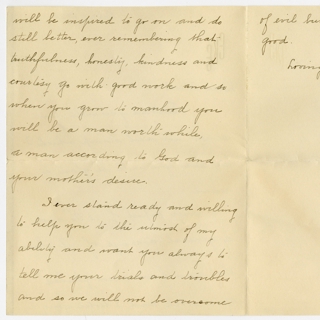 will be inspired to go on and do
still better, ever remembering that
truthfulness, honesty, kindness and
courtesy go with good work and so
when you grow to manhood you
will be a man worth while,
a man according to God and
your mother's desire.
I ever stand ready and willing
to help you to the utmost of my
ability and want you always to
tell me your trials and troubles
and so we will not be overcome
of evil bu
good.
Loving